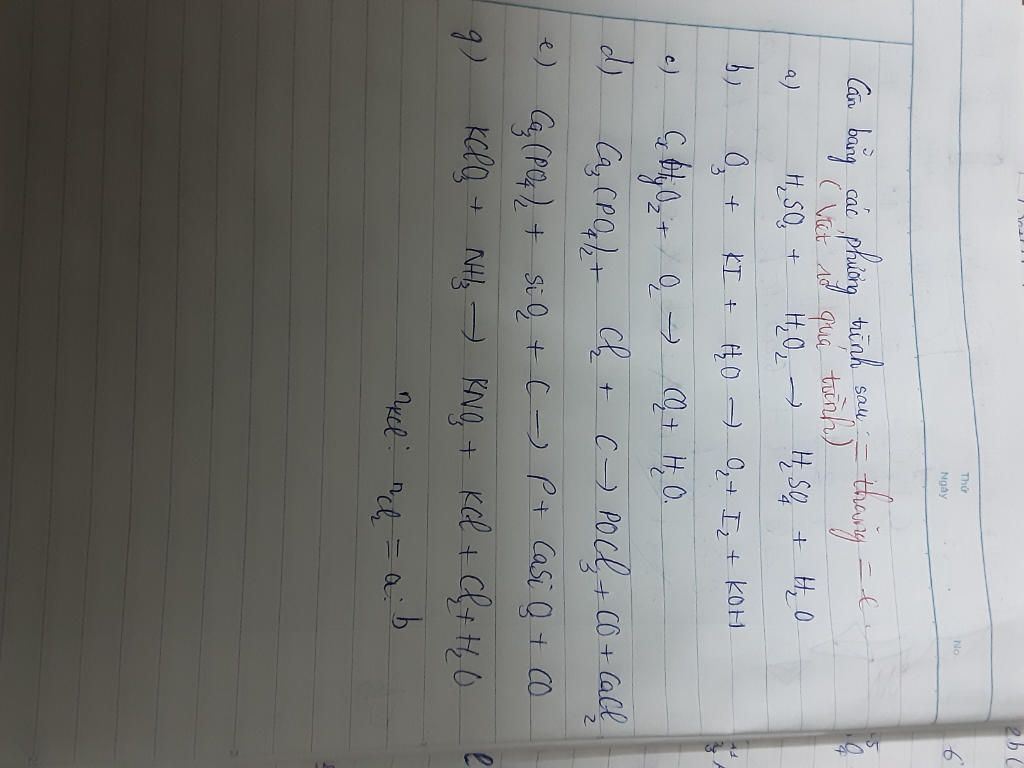 Thứ
Ngày
No.
Cân bằng các phương trình sau: = thăng = e
(Viết sơ quá trình)
a) H₂SO₃ + H₂O₂ → H₂SO₄ + H₂O
b) O₃ + KI + H₂O → O₂ + I₂ + KOH
c) C₂H₄O₂ + O₂ → CO₂ + H₂O.
d) Ca₃(PO₄)₂ + Cl₂ + C → POCl₃ + CO + CaCl₂
e) Ca₃(PO₄)₂ + SiO₂ + C → P + CaSiO₃ + CO
g) KClO₃ + NH₃ → KNO₃ + KCl + Cl₂ + H₂O
nKCl : nCl₂ = a : b